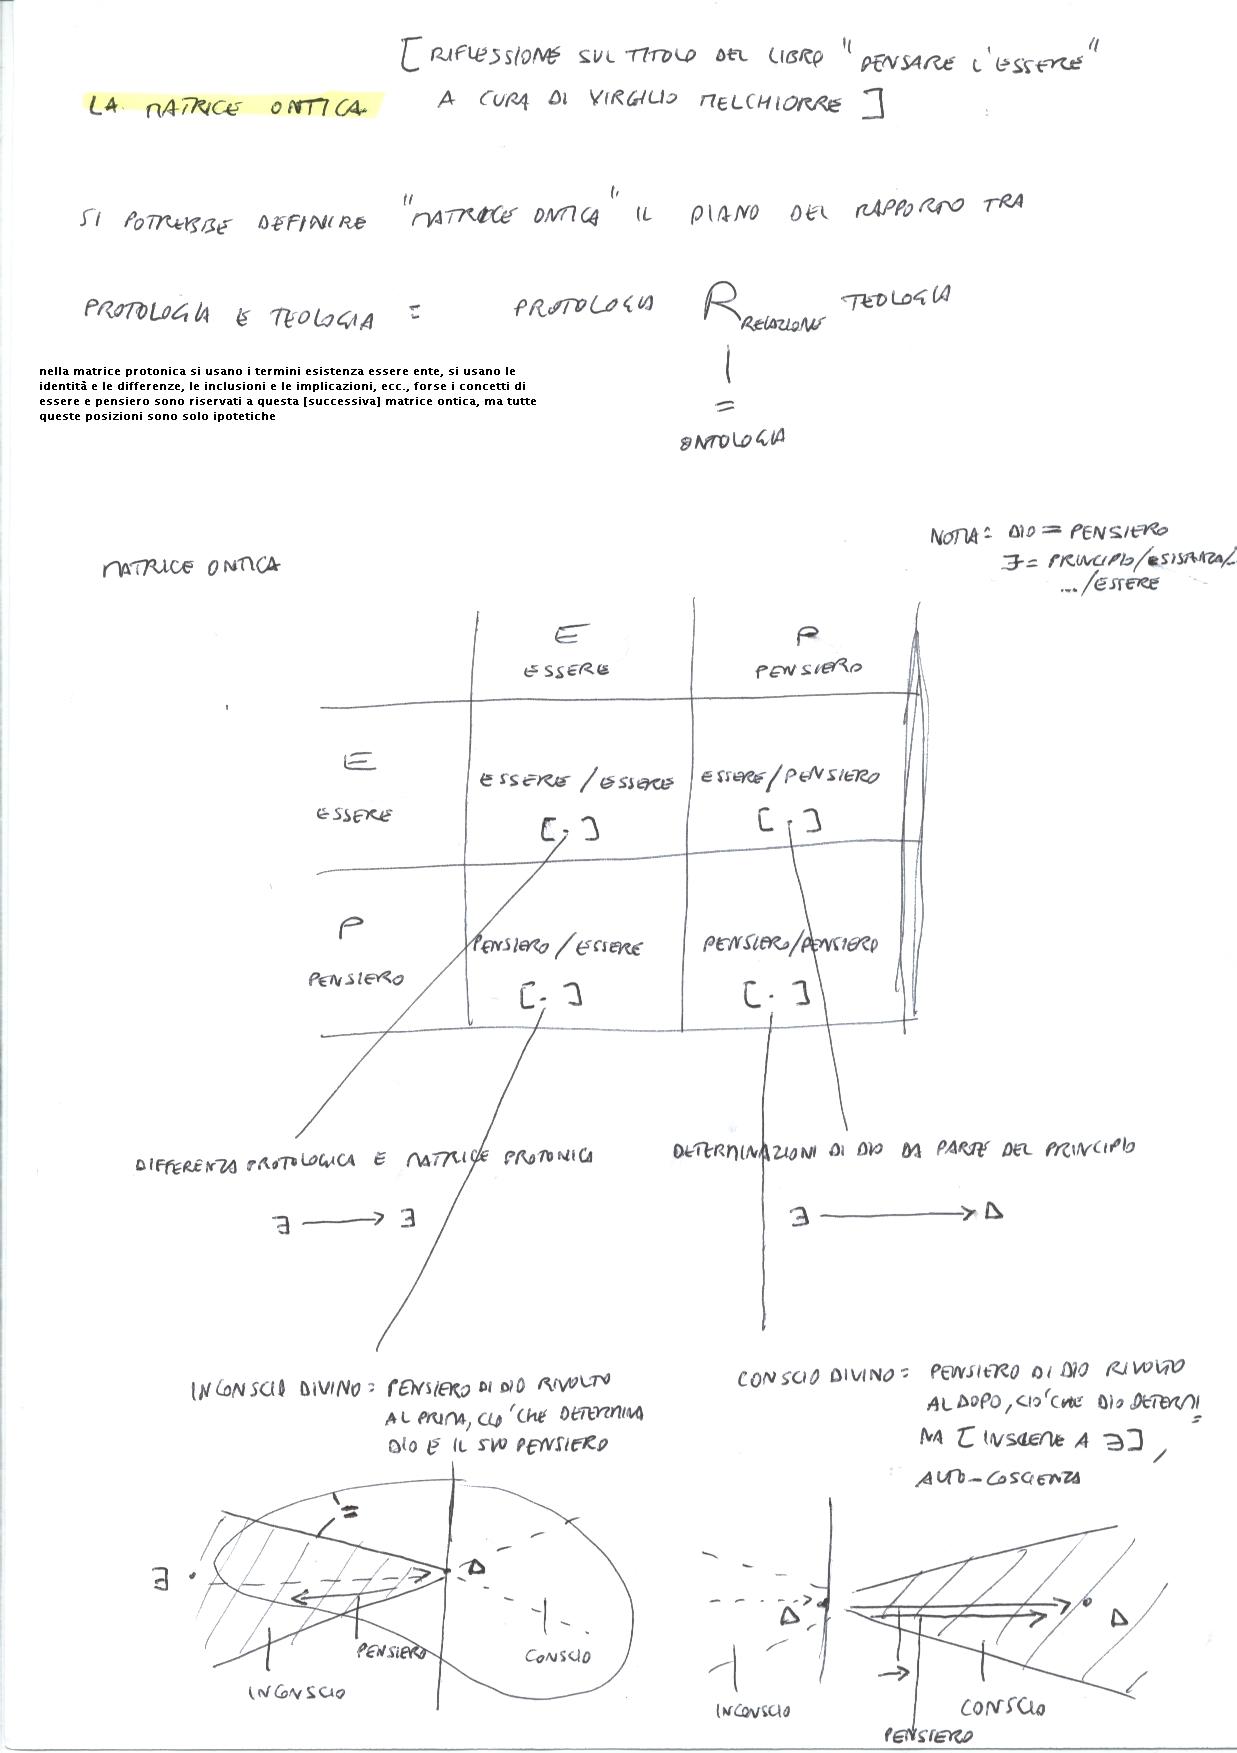 [ RIFLESSIONE SUL TITOLO DEL LIBRO "PENSARE L'ESSERE"
LA MATRICE ONTICA
A CURA DI VIRGILIO MELCHIORRE ]
SI POTREBBE DEFINIRE "MATRICE ONTICA" IL PIANO DEL RAPPORTO TRA
PROTOLOGIA E TEOLOGIA = PROTOLOGIA R RELAZIONE TEOLOGIA
nella matrice protonica si usano i termini esistenza essere ente, si usano le
identità e le differenze, le inclusioni e le implicazioni, ecc., forse i concetti di
essere e pensiero sono riservati a questa [successiva] matrice ontica, ma tutte
queste posizioni sono solo ipotetiche
=
ONTOLOGIA
NOTA: DIO = PENSIERO
∃ = PRINCIPIO/ESISTENZA/
.../ESSERE
MATRICE ONTICA
E P
ESSERE PENSIERO
E
ESSERE
ESSERE/ESSERE ESSERE/PENSIERO
[.] [.]
P
PENSIERO
PENSIERO/ESSERE PENSIERO/PENSIERO
[.] [.]
DIFFERENZA PROTOLOGICA E MATRICE PROTONICA
∃ → ∃
DETERMINAZIONI DI DIO DA PARTE DEL PRINCIPIO
∃ → Δ
INCONSCIO DIVINO = PENSIERO DI DIO RIVOLTO
AL PRIMA, CIO' CHE DETERMINA
DIO E IL SUO PENSIERO
CONSCIO DIVINO = PENSIERO DI DIO RIVOLTO
AL DOPO, CIO' CHE DIO DETERMI
=
NA [INSIEME A ∃],
AUTO-COSCIENZA
=
∃
Δ
PENSIERO
CONSCIO
INCONSCIO
Δ
Δ
INCONSCIO
CONSCIO
→
PENSIERO